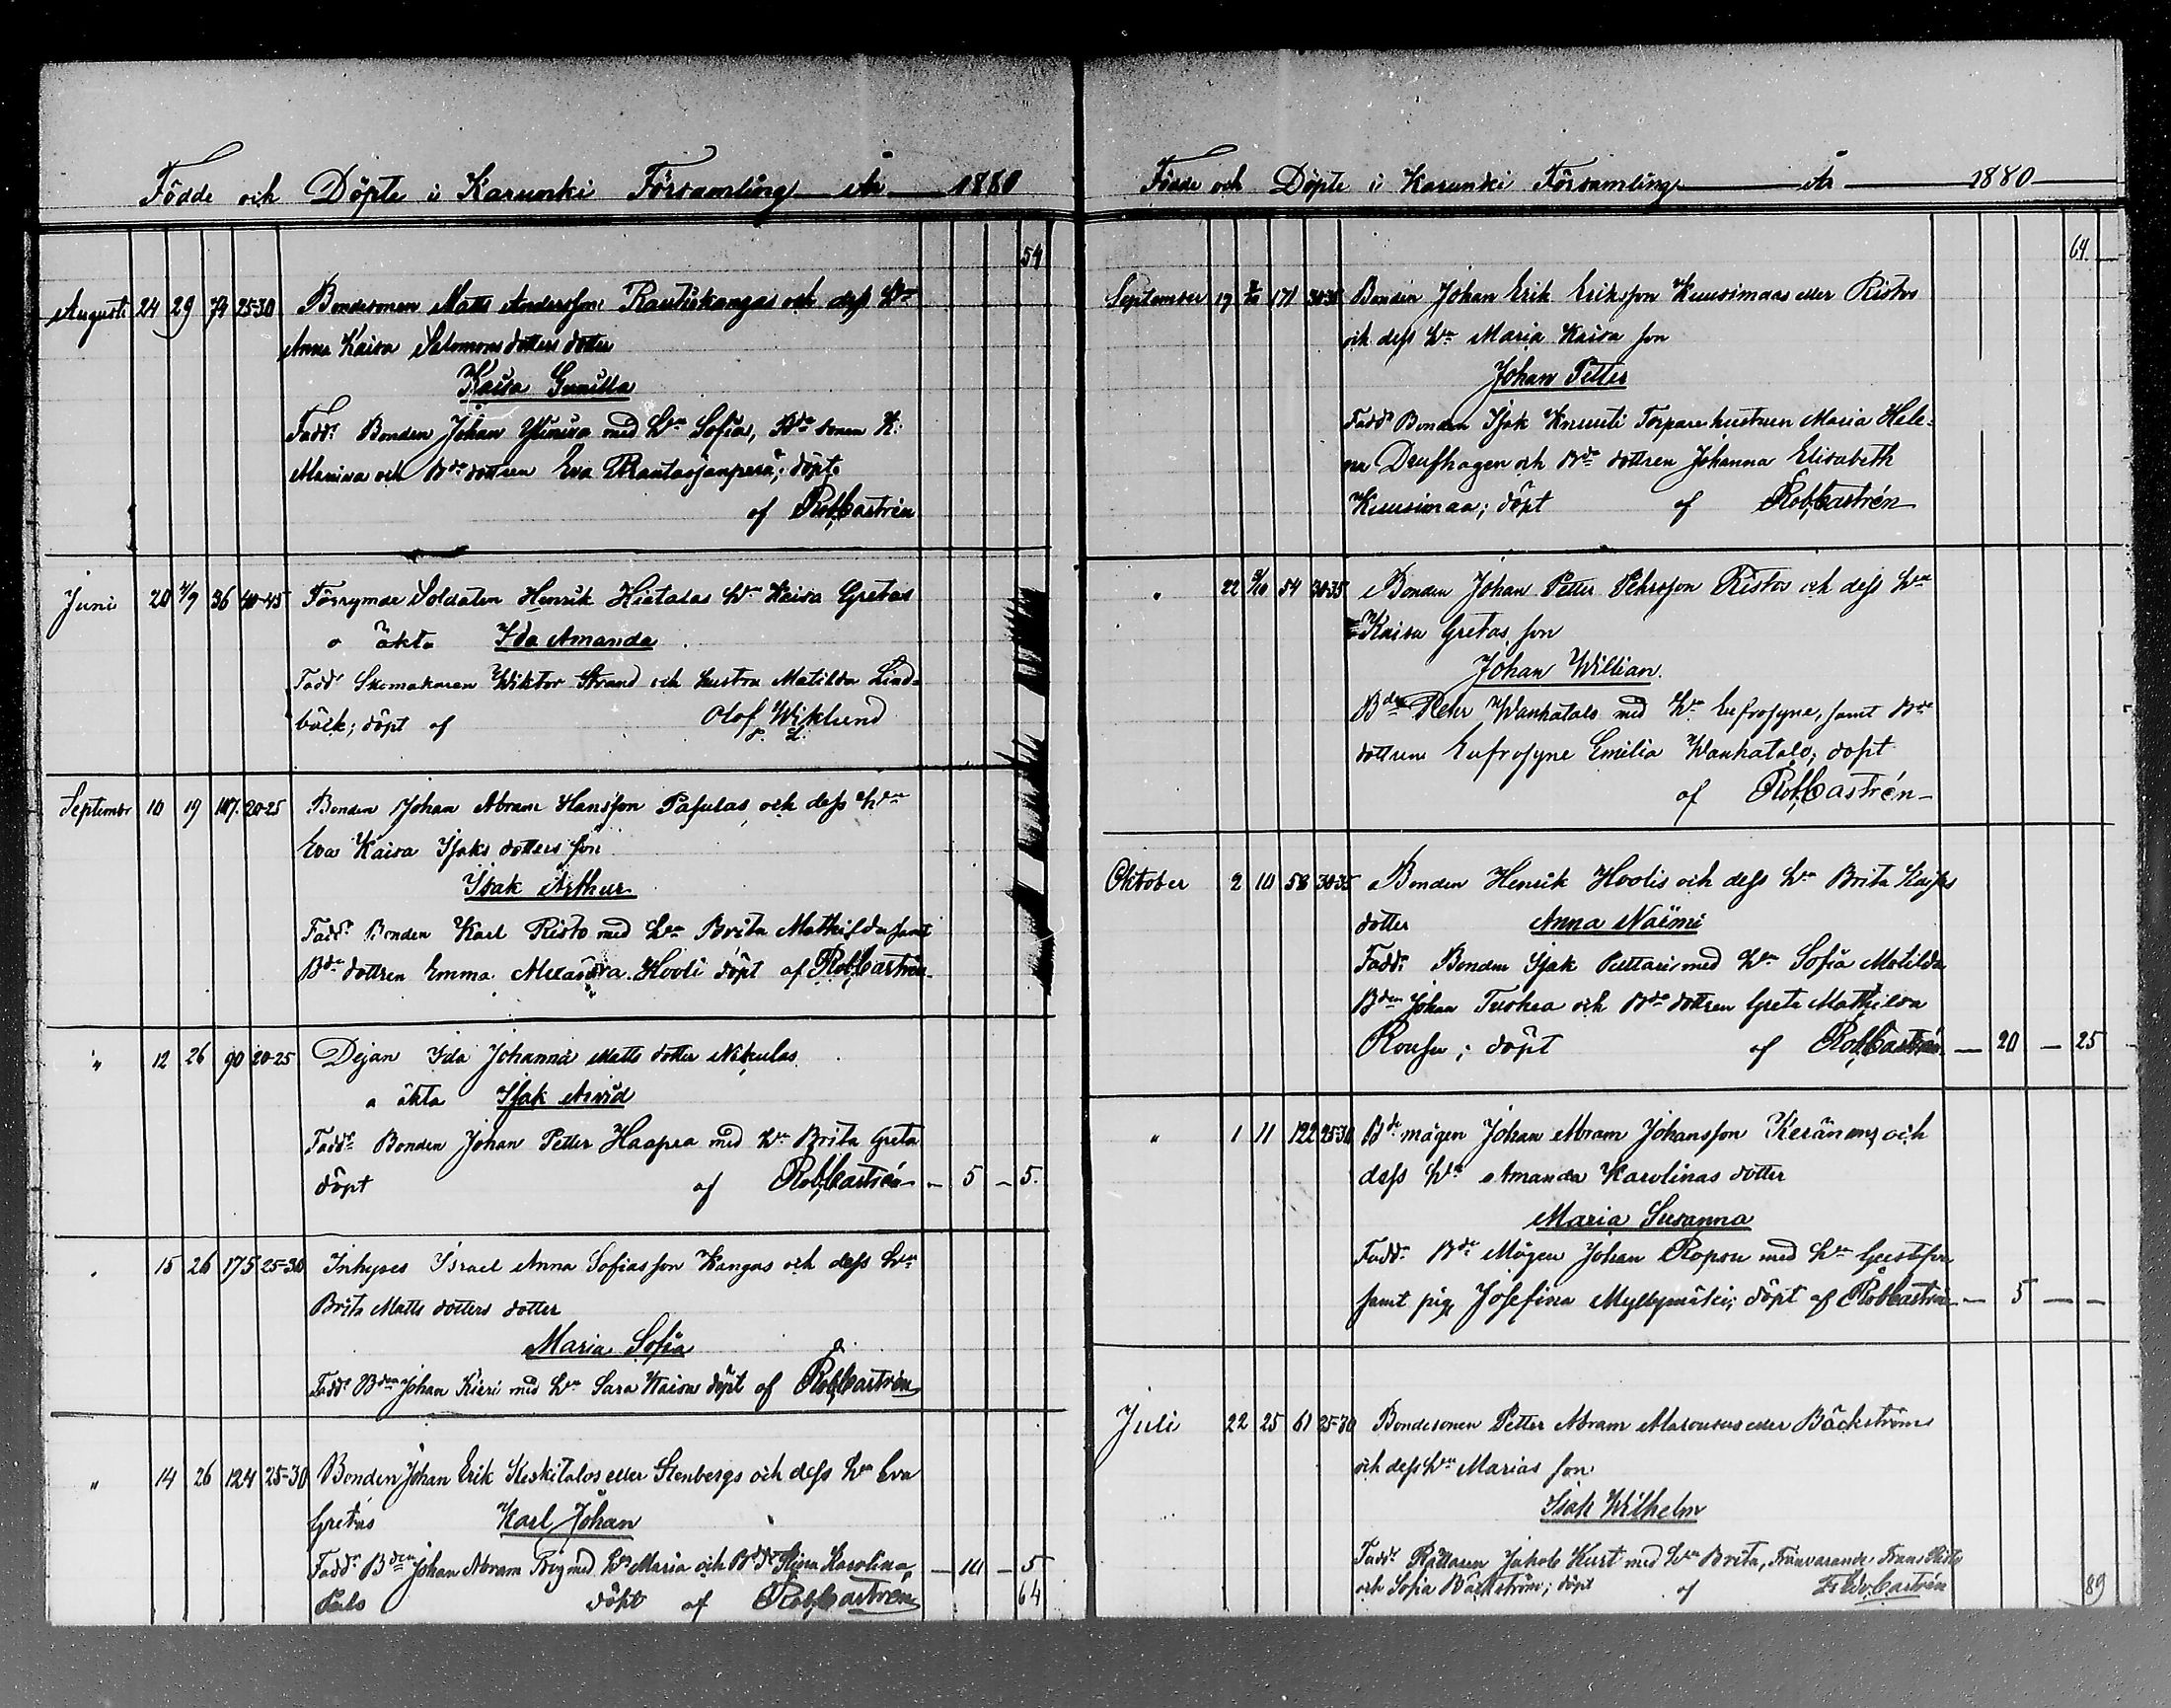 Födde och Döpte i Karunki Församling År 1880
54
Augusti 24 29 74 25-30 Bondesonen Matts Andersson Rautiskangas och dess Hu
Anna Kaisa Salomons dotters dotter
Kaisa Gunilla
Fadd. Bonden Johan med Hu Sofia, Bde sonen H.
Marina och Bde dottren Eva Rautasjanperä; döpt
af Rob Castrén
Juni 20 4/9 36 40-45 Förrymde Soldaten Henrik Hietalas Hu Kaisa Gretas
o äkta Ida Amanda
Fadd. Skomakaren Wiktor Strand och hustru Matilda Lind-
bäck; döpt af Olof Wiklund
Septembr 10 19 107. 20-25 Bonden Johan Abram Hansson Pasulas och dess Hu
Eva Kaisa Isaks dotters son
Isak Arthur
Fadd. Bonden Karl Risto med Hu Brita Mathilda samt
Bde dottren Emma Alexandra Hooli döpt af Rob Castrén
" 12 26 90 20-25 Dejan Ida Johanna Matts dotter Nikulas
o äkta Isak Arvid
Fadd. Bonden Johan Petter Haapea med Hu Brita Greta
döpt af Rob Castrén — 5 — 5.
" 15 26 175 25-30 Inhyses Israel Anna Sofiasson Kangas och dess Hu
Brita Matts dotters dotter
Maria Sofia
Fadd. Bden Johan Kieri med Hu Sara Kaisa döpt af Rob Castrén
" 14 26 124 25-30 Bonden Johan Erik Keskitalos eller Stenbergs och dess Hu Eva
Gretas Karl Johan
Fadd. Bden Johan Abram med Hu Maria och Bde dr Stina Karolina — 10 — 5
Palo döpt af Rob Castrén 64
Födde och Döpte i Karunki Församling År 1880
64.
September 19 3/10 171 30-35 Bonden Johan Erik Eriksson Kuusimaas eller Ristos
och dess Hu Maria Kaisa son
Johan Petter
Fadd. Bonden Isak Knuuti Torpare hustrun Maria Hele-
na Drufhagen och Bde dottren Johanna Elisabeth
Kuusimaa; döpt af Rob Castrén
" 22 3/10 54 30-35 Bonden Johan Petter Pehrsson Ristos och dess Hu
Kaisa Gretas son
Johan Willian.
Bden Pehr Wanhatalo med Hu Eufrosyne, samt Bde
dottren Eufrosyne Emilia Wanhatalo; döpt
af Rob Castrén
Oktober 2 10 58 30-35 Bonden Henrik Hoolis och dess Hu Brita Kaisas
dotter Anna Naëmi
Fadd. Bonden Isak Puttari med Hu Sofia Matilda
Bden Johan Tuohea och Bde dottren Greta Mathilda
; döpt af Rob Castrén — 20 — 25
" 1 11 122 25-30 Bde mågen Johan Abram Johansson Keränens och
dess Hu Amanda Karolinas dotter
Maria Susanna
Fadd. Bde Mågen Johan Ropsu med Hu
samt pig. Josefina Myllymäki; döpt af Rob Castrén — 5 — —
Juli 22 25 61 25-30 Bondesonen Petter Abram eller Bäckströms
och dess Hu Marias son
Isak Wilhelm
Fadd. Rättaren Jakob Kurt med Hu Brita, Frånvarande Frans Risto
och Sofia Bäckström; döpt af Castrén 89